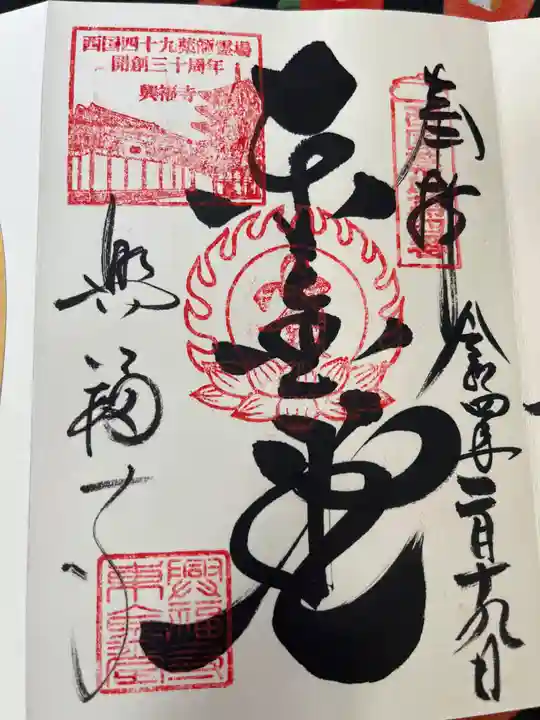 奉拝
令和四年二月十九日
東金堂
西国四十九薬師霊場
開創三十周年
興福寺
興福寺
興福寺
東金堂